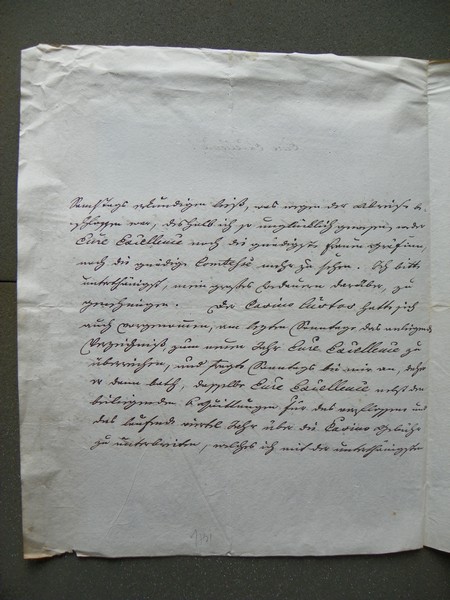 Samstags erkundigen ließ, was wegen der Abreise
schlossen war, deshalb ich so unglücklich gewesen, weder
Eure Excellence noch die gnädigste Frau Gräfinn,
noch die gnädige Comtesse mehr zu sehen. Ich bitte
unterthänigst, mein großes Bedauern darüber, zu
genehmigen. Der Casino Custos hatte sich
auch vorgenommen, am letzten Sonntage das anliegende
Verzeichniß, zum neuen Jahr Eure Excellence zu
überreichen, und fragte Sonntags bei mir an, daher
er dann bath, dasselbe Eure Excellence nebst den
beiliegenden Quittungen für das verflossene und
das laufende viertel Jahr über die Casino Gelder
zu unterbreiten, welches ich mit der unterthänigsten